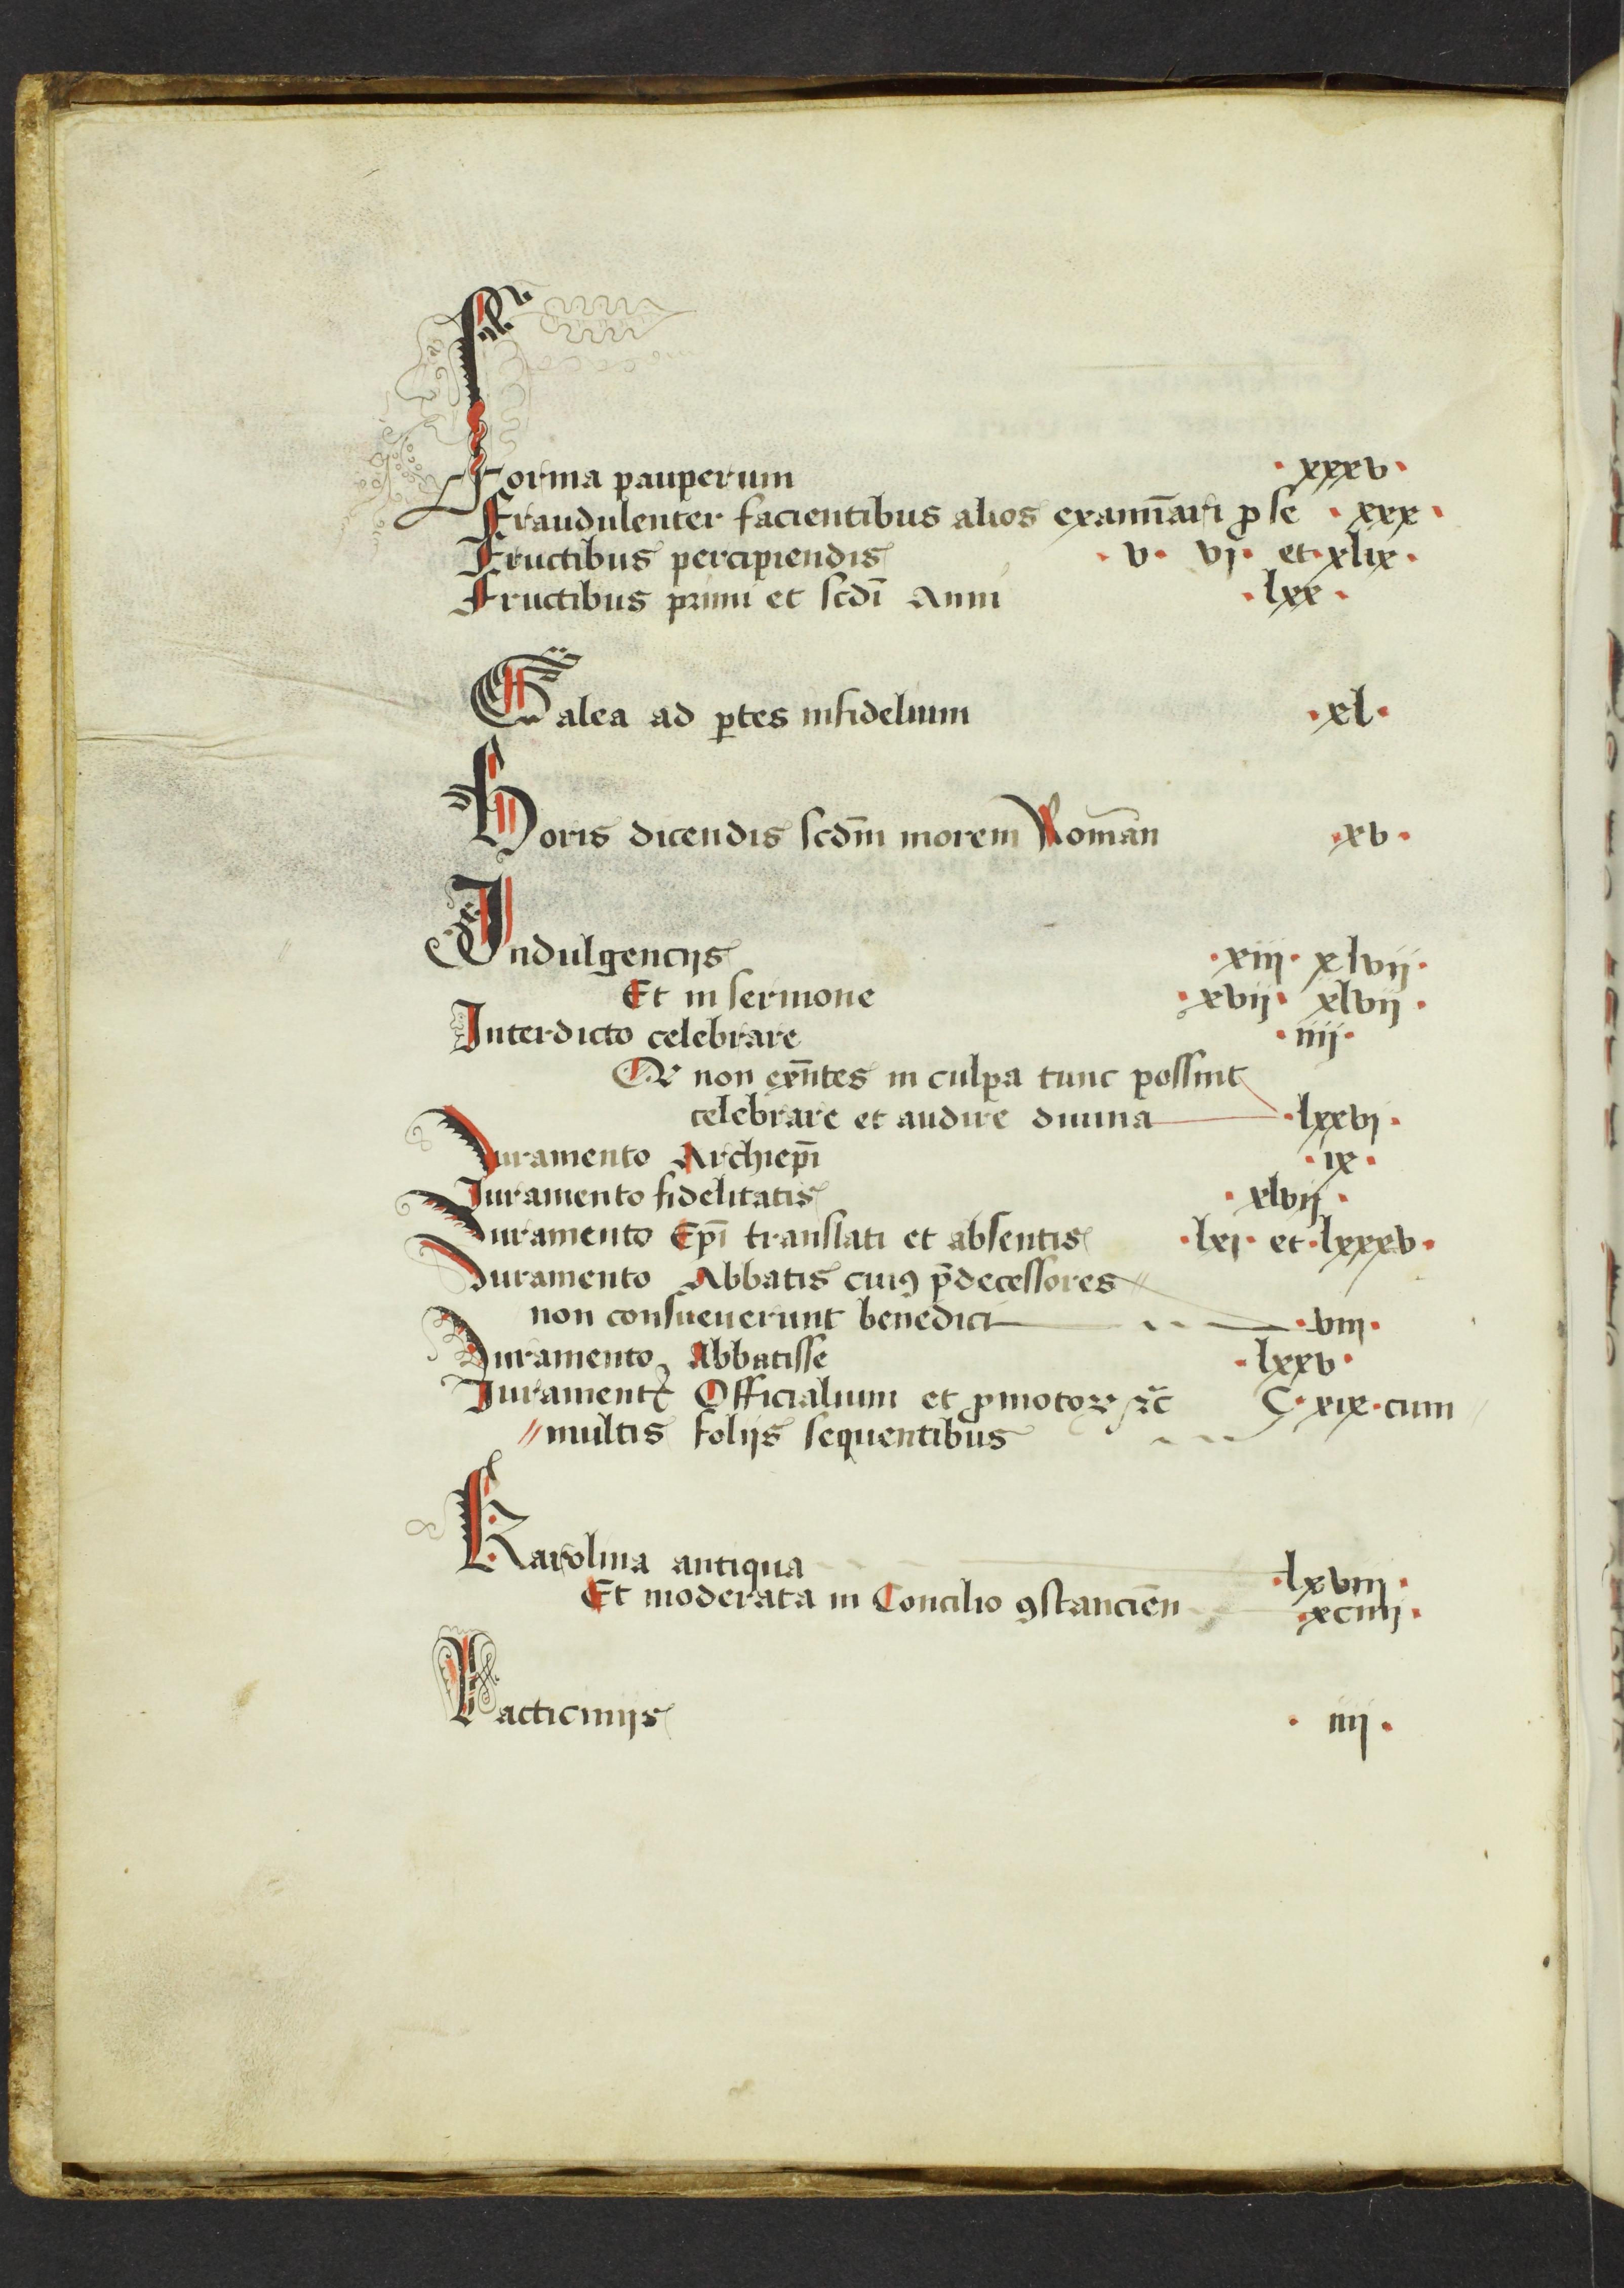 Forma pauperum · xxxv ·
Fraudulenter facientibus alios examīari ꝓ se · xxx ·
Fructibus percipiendis · v · vj · et · xlix ·
Fructibus primi et scdī Anni · lxx ·
Galea ad ꝑtes infidelium · xl ·
Horis dicendis scdm̄ morem Romān · xv ·
Indulgencijs · xiij · xlvij ·
Et in sermone · xvij · xlvij ·
Interdicto celebrare · iiij ·
Qꝛ non exn̄tes in culpa tunc possint
celebrare et audire diuina · lxxvj ·
Juramento Archiepī · ix ·
Juramento fidelitatis · xlvij ·
Juramento Epī translati et absentis · lxj · et · lxxxv ·
Juramento Abbatis cuiꝰ p̄decessores
non consueuerunt benedici · viij ·
Juramento Abbatisse · lxxv ·
Juramentꝭ Officialium et ꝓmotoꝝ ⁊c̄ C · xix · cum
multis folijs sequentibus
Karolina antiqua · lxviij ·
Et moderata in Concilio ꝯstanciēn · xciiij ·
Lacticinijs · iiij ·